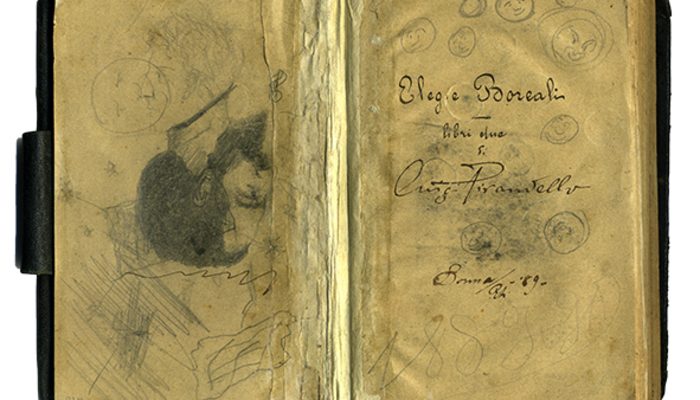 Elegie Boreali
libri due
di
Luigi Pirandello
Bonna a/Rh. - '89 -
1889